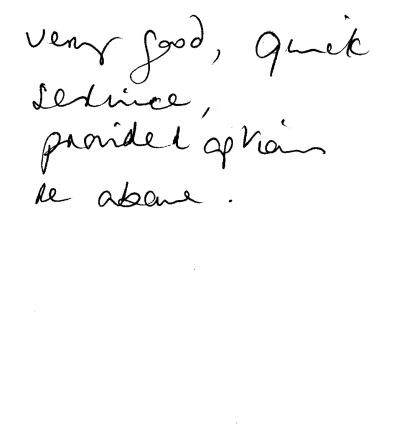 very good, quick
service,
provided options
re above.